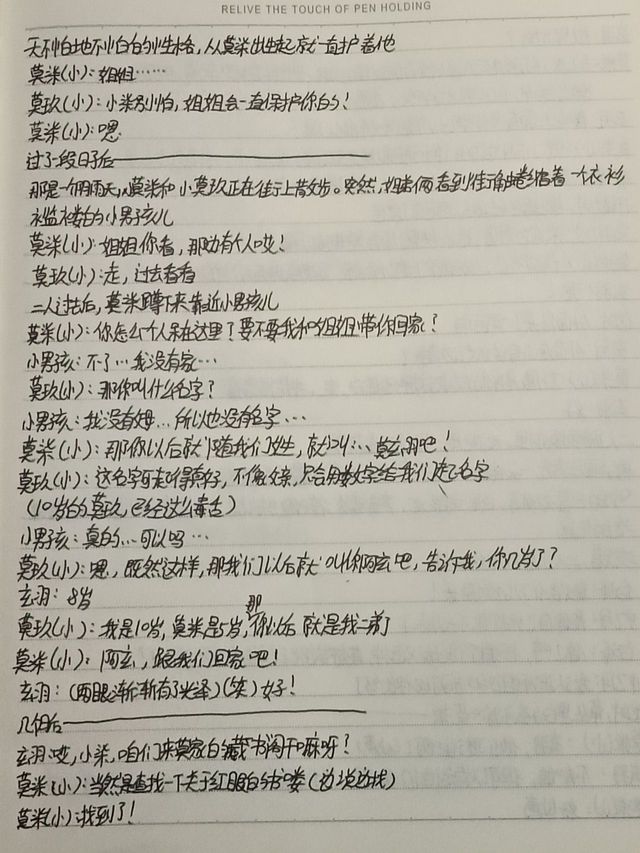 RELIVE THE TOUCH OF PEN HOLDING
天不怕地不怕的性格，从莫柒出生起就一直护着他
莫柒(小)：姐姐……
莫玖(小)：小柒别怕，姐姐会一直保护你的！
莫柒(小)：嗯
过了一段日子后
那是一个阴雨天，小莫柒和小莫玖正在街上散步。突然，姐弟俩看到街角蜷缩着一个衣衫
褴褛的小男孩儿
莫柒(小)：姐姐你看，那边有个人哎！
莫玖(小)：走，过去看看
二人过去后，莫柒蹲下来靠近小男孩儿
莫柒(小)：你怎么个人呆在这里？要不要我和姐姐带你回家？
小男孩：不了…我没有家…
莫玖(小)：那你叫什么名字？
小男孩：我没有姓…所以也没有名字…
莫柒(小)：那你以后就随我们姓，就叫…莫玄羽吧！
莫玖(小)：这名字可起得真好，不像父亲，只会用数字给我们起名字
(10岁的莫玖，已经这么毒舌)
小男孩：真的…可以吗…
莫玖(小)：嗯，既然这样，那我们以后就叫你阿玄吧，告诉我，你几岁了？
玄羽：8岁
莫玖(小)：我是10岁，莫柒是5岁，那你以后就是我二弟了
莫柒(小)：阿玄，跟我们回家吧！
玄羽：(两眼渐渐有了光泽)(笑)好！
几年后
玄羽：哎，小柒，咱们来莫家的藏书阁干嘛呀？
莫柒(小)：当然是查找一下关于红眼的书喽(边说边找)
莫柒(小)：找到了！